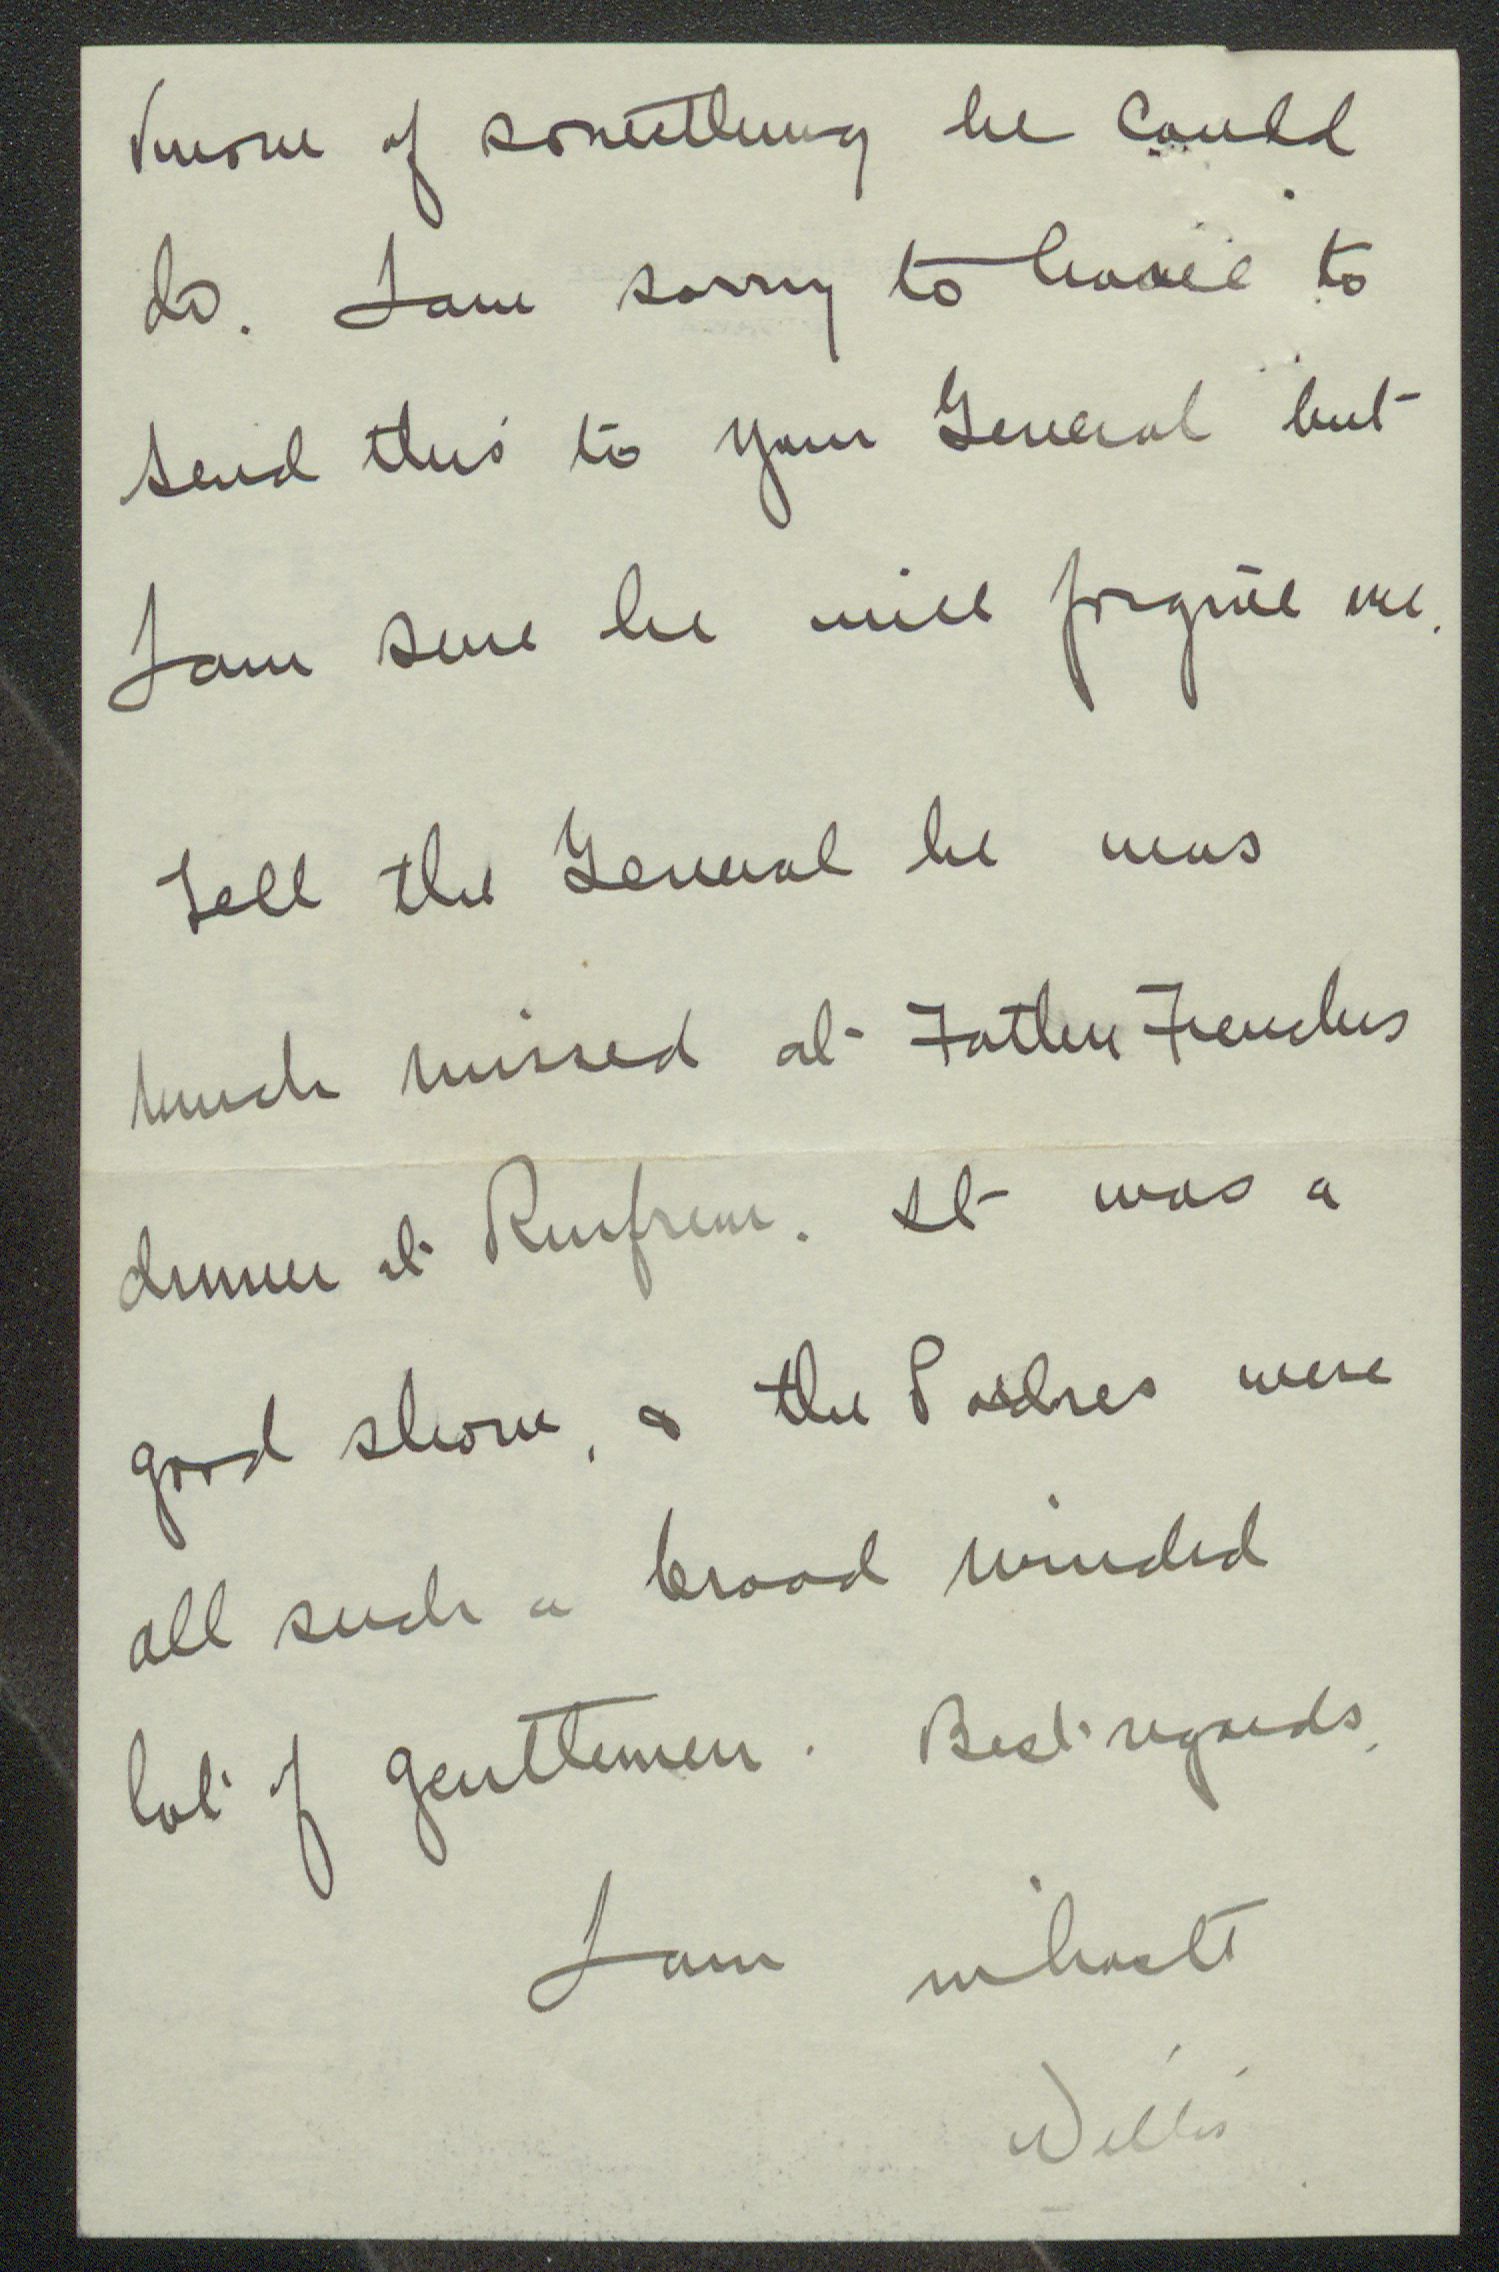 know of something he could
do. I am sorry to have to
send this to your General but
I am sure he will forgive me.
Tell the General he was
much missed at Father Frenchs
dinner at Renfrew. It was a
good show, & the Padres were
all such a broad minded
lot of gentlemen. Best regards,
I am in haste
Willis